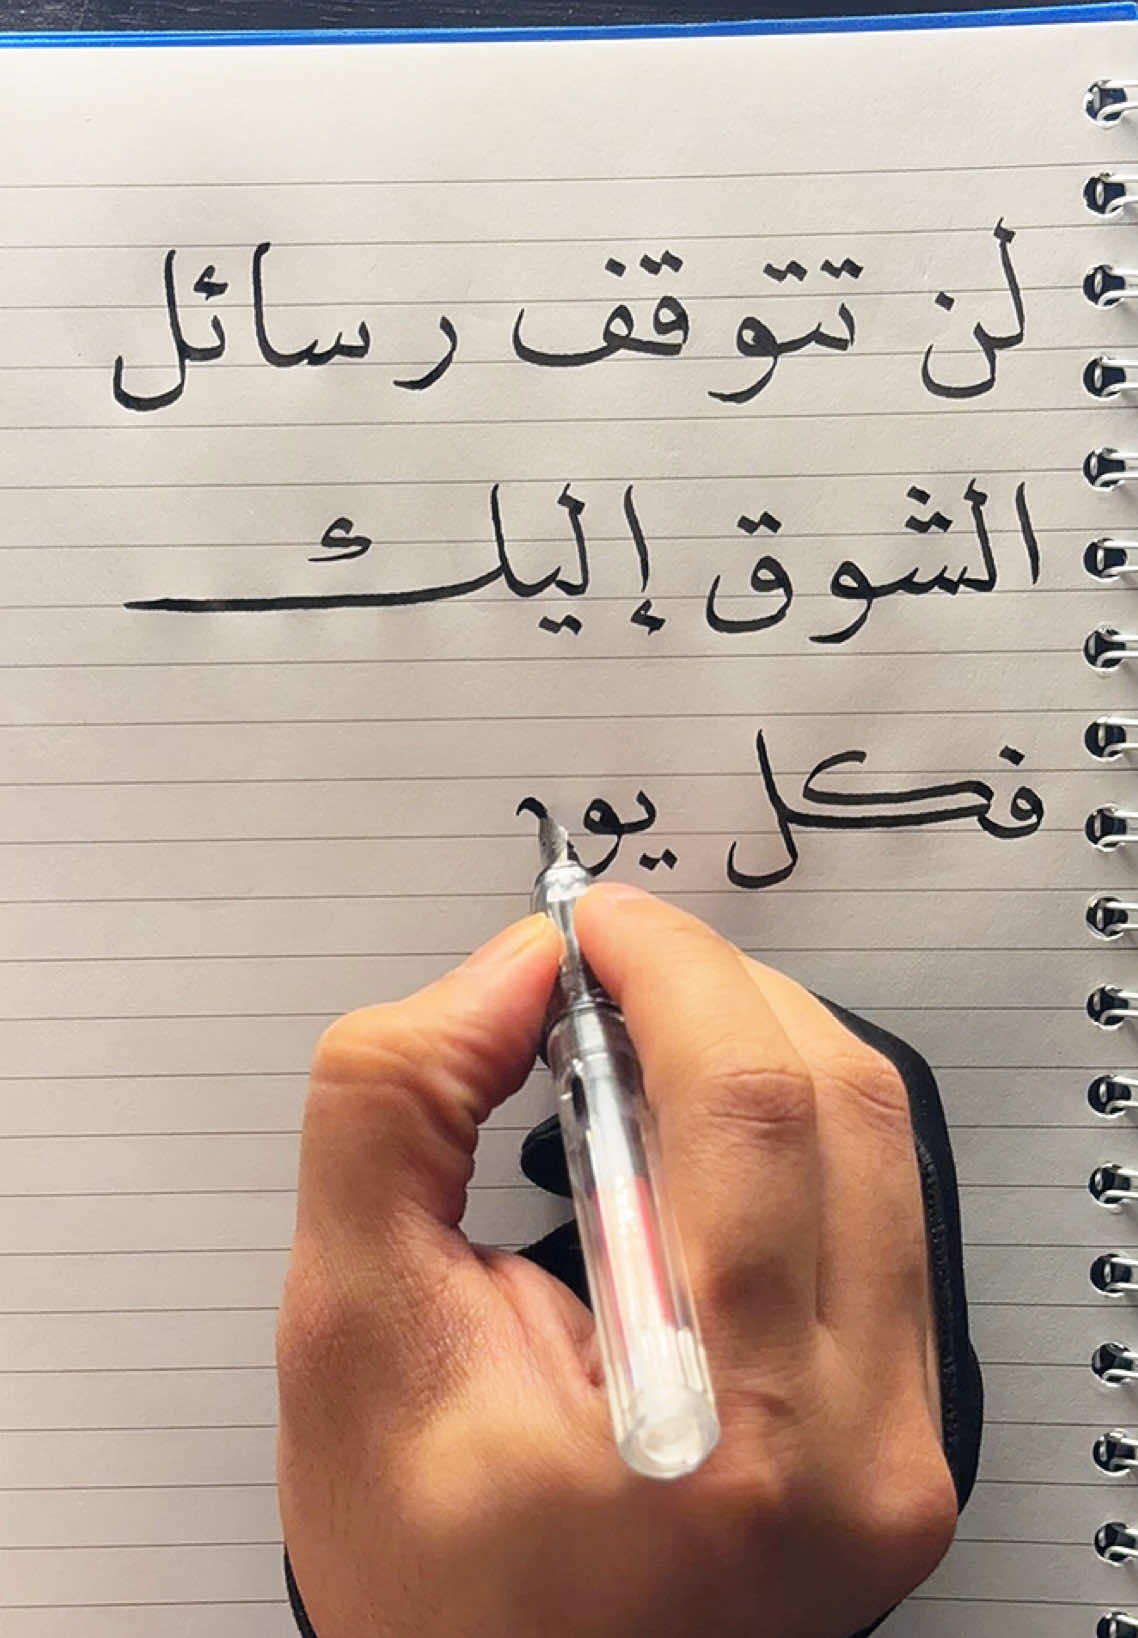 لن تتوقف رسائل
الشوق إليك
فكل يوم